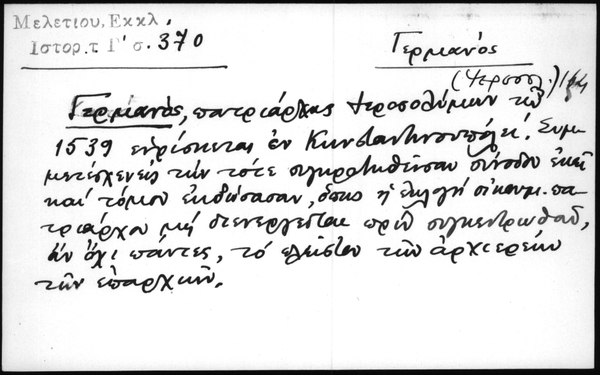 Μελετίου, Εκκλ.
Ιστορ. τ Γ' σ. 370
Γερμανός
(Ιεροσολ.)
Γερμανός, πατριάρχης Ιεροσολύμων τῷ
1539 εὑρίσκεται ἐν Κωνσταντινουπόλει. Συμ
μετέσχεν εἰς τὴν τότε συγκροτηθεῖσαν σύνοδον ἐκεῖ
καί τόμον ἐκδώσασαν, ὅπως ἡ ἐκλογή οἰκουμ. πα
τριάρχου μή διενεργεῖται πρίν συγκεντρωθοῦν,
ἄν ὄχι πάντες, τό πλεῖστον τῶν ἀρχιερέων
τῶν ἐπαρχιῶν.